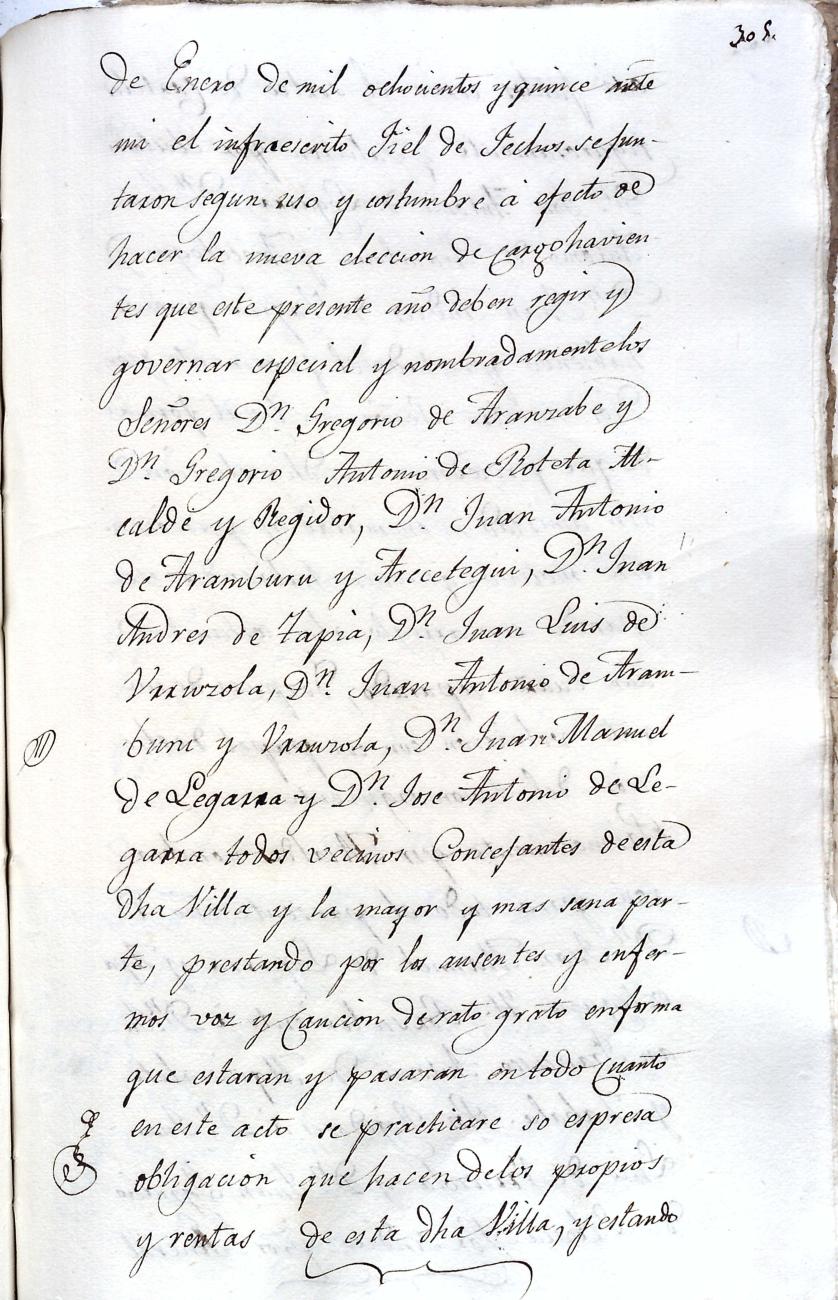 305.
de Enero de mil ochocientos y quince ante
mi el infraescrito Fiel de Fechos se jun-
taron segun uso y costumbre à efecto de
hacer la nueva eleccion de cargohavien
tes que este presente año deben regir y
governar especial y nombradamente los
Señores Dn. Gregorio de Aranzabe y
Dn. Gregorio Antonio de Roteta Al-
calde y Regidor, Dn. Juan Antonio
de Aramburu y Arecetegui, Dn. Juan
Andres de Tapia, Dn. Juan Luis de
Urruzola, Dn. Juan Antonio de Aram-
buru y Urruzola, Dn. Juan Manuel
de Legarra y Dn. Jose Antonio de Le-
garra todos vecinos Concejantes de esta
dha Villa y la mayor y mas sana par-
te, prestando por los ausentes y enfer-
mos voz y caucion de rato grato en forma
que estaran y pasaran en todo cuanto
en este acto se practicare so espresa
obligacion que hacen de los propios
y rentas de esta dha Villa, y estando